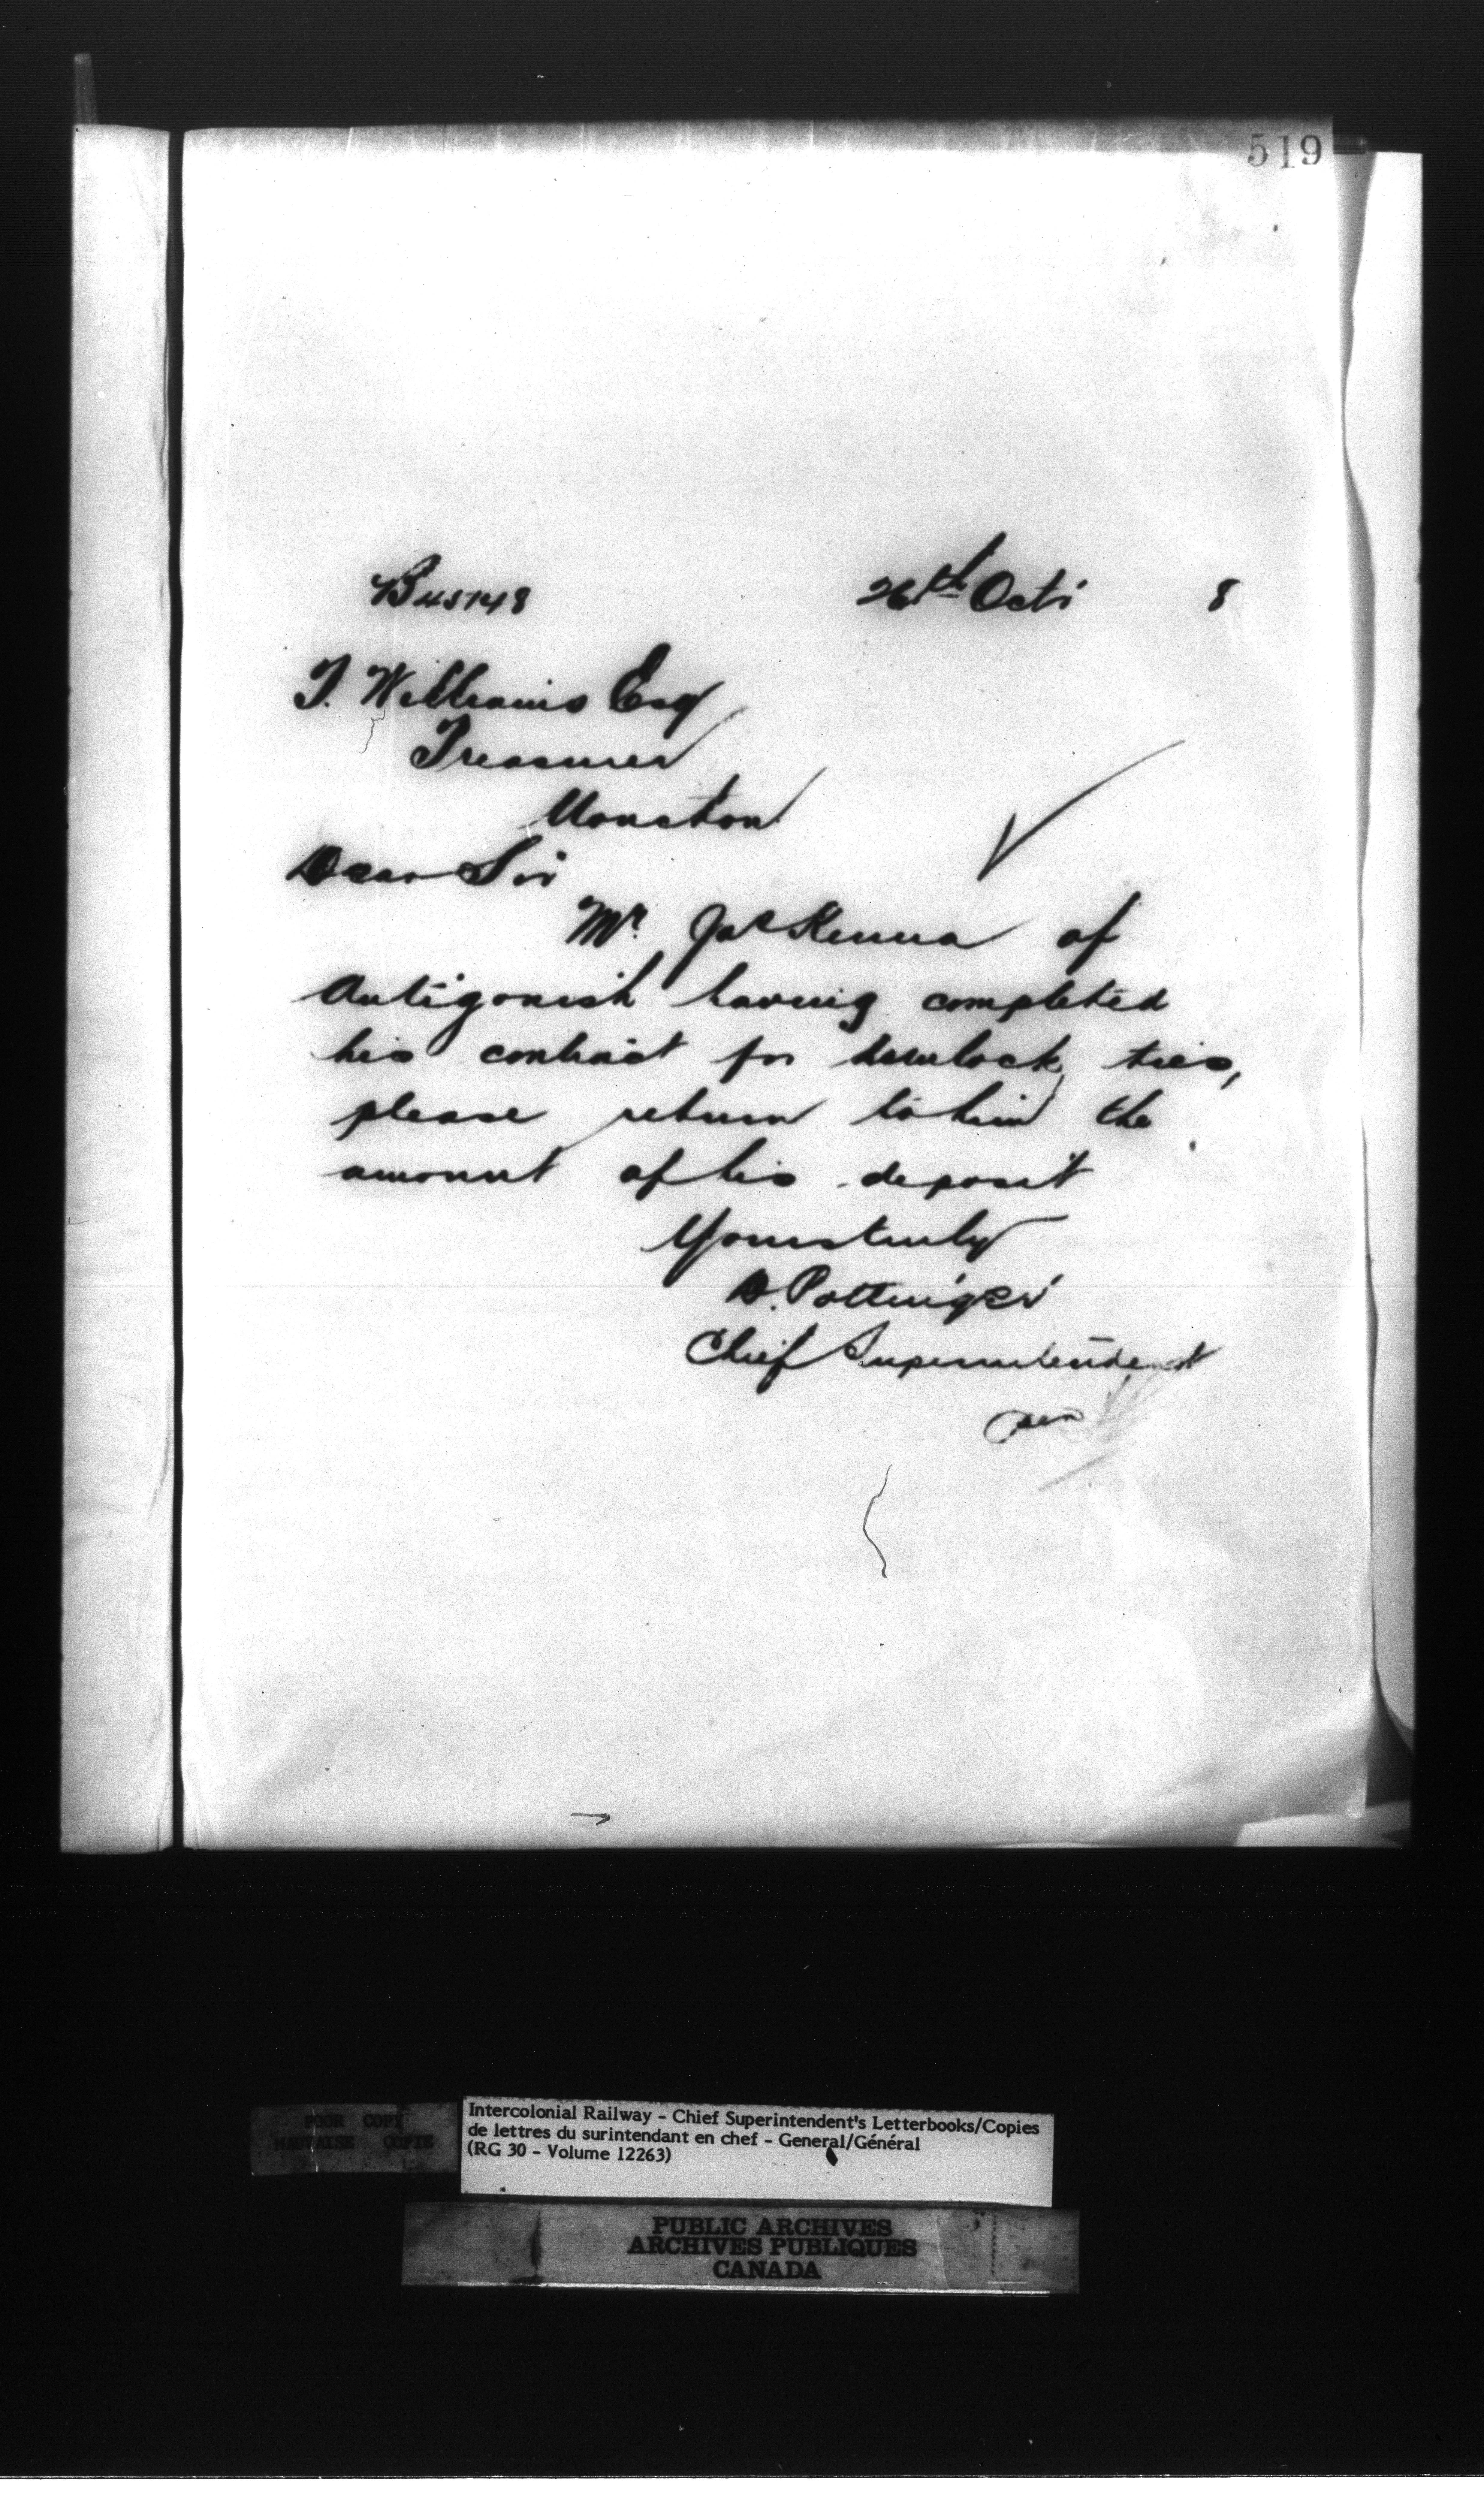 519
B 45148
26th Oct. 8
T. Williams Esq
Treasurer
Moncton
Dear Sir
Mr. Jas Kenna of
Antigonish having completed
his contract for hemlock ties,
please return to him the
amount of his deposit
Yours truly
D. Pottinger
Chief Superintendent
per
POOR COPY
MAUVAISE COPIE
Intercolonial Railway - Chief Superintendent's Letterbooks/Copies
de lettres du surintendant en chef - General/Général
(RG 30 - Volume 12263)
PUBLIC ARCHIVES
ARCHIVES PUBLIQUES
CANADA